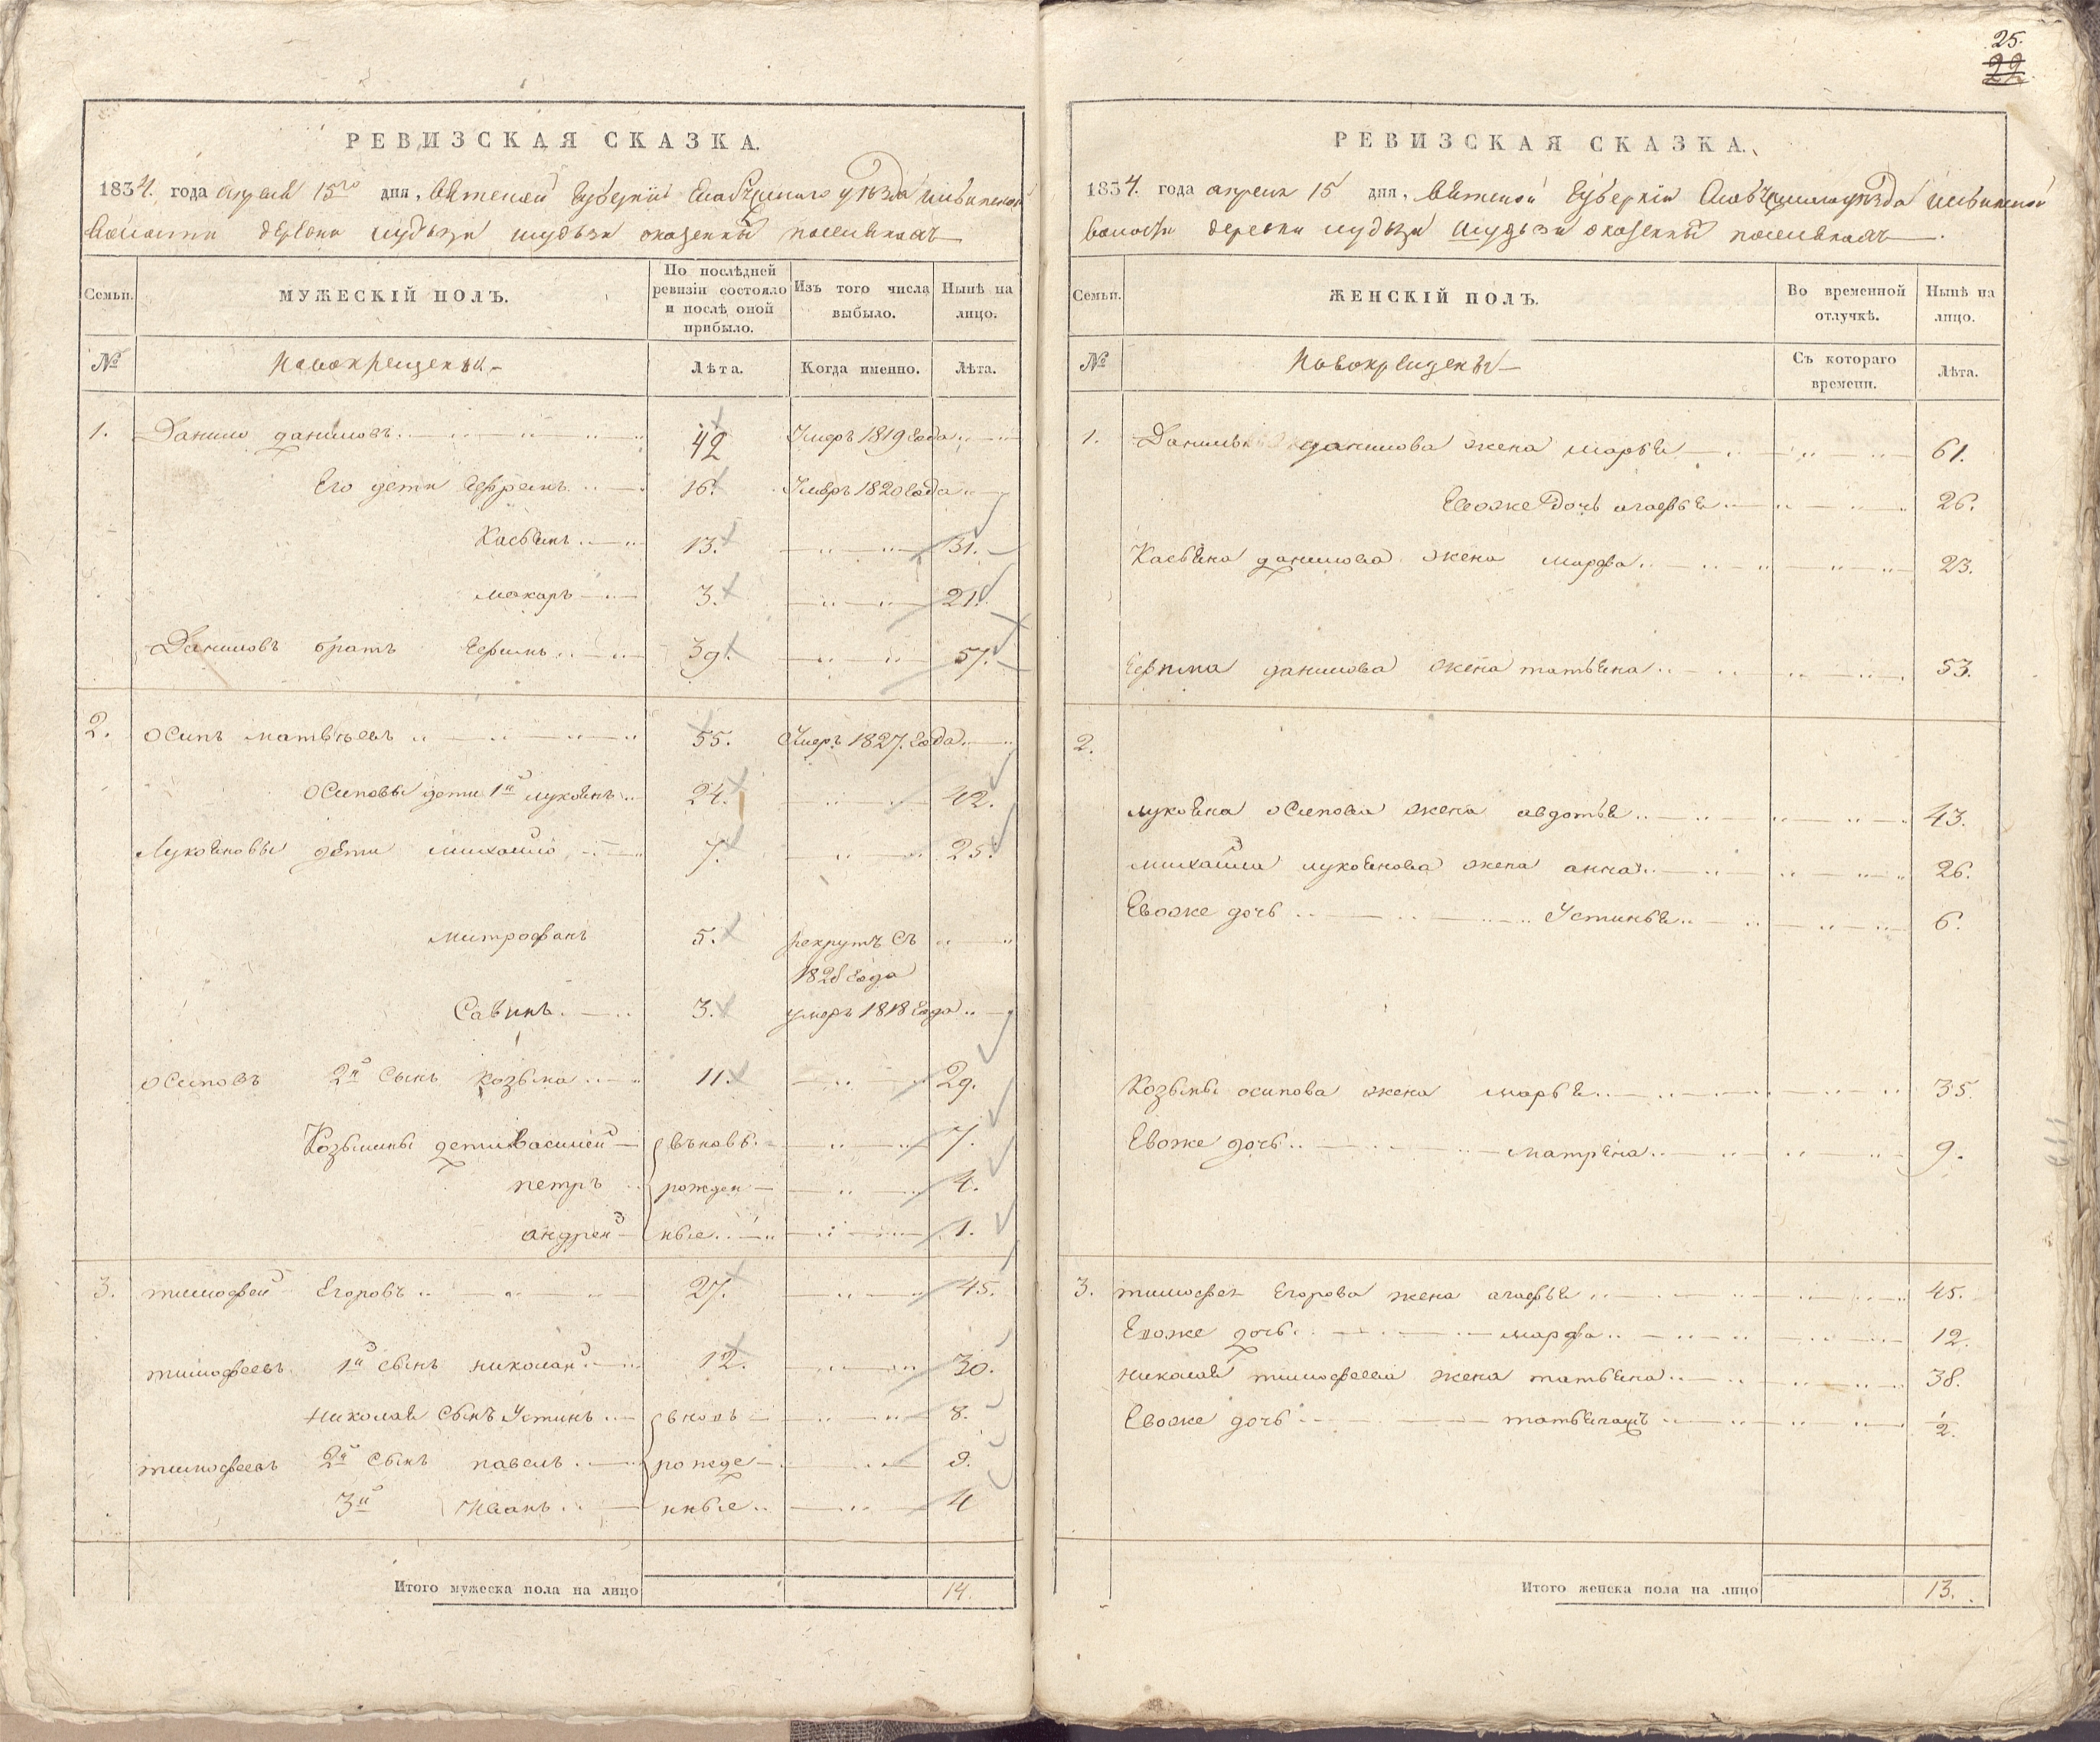 25.
22
РЕВИЗСКАЯ СКАЗКА.
1834. года апреля 15го дня, Вятской Губернiи Елабужского уѣзда
волости деревни
Семьи. МУЖЕСКІЙ ПОЛЪ. По послѣдней ревизіи состояло и послѣ оной прибыло. Изъ того числа выбыло. Нынѣ на лицо.
№ Новокрещены Лѣта. Когда именно. Лѣта.
1. Данило даниловъ 42 Умеръ 1819 года
Его дети Ефремъ 16. Умеръ 1820 года
Касьянъ 13. 31.
макаръ 3. 21.
Даниловъ братъ Ефимъ 39. 57.
2. Осипъ матвѣевъ 55. Умеръ 1827. года
Осиповы дети 1й лукоянъ 24. 42.
Лукояновы дети михайло 7. 25.
митрофанъ 5. рекрутъ съ
182 года
Савинъ 3. умеръ 1818 года
Осиповъ 2й сынъ козьма 11. 29.
Козьмины дети Василей вьновь 7.
петръ рожден 4.
андрей ные 1.
3. тимофей Егоровъ 27. 45.
тимофеевъ 1й сынъ николай 12. 30.
николая сынъ Устинъ вновь 8.
тимофеевъ 2й сынъ павелъ рожде
3й Иванъ нные 4
Итого мужеска пола на лицо 14.
РЕВИЗСКАЯ СКАЗКА.
1834. года апреля 15 дня, Вятской Губерніи уѣзда
волости деревни
Семьи. ЖЕНСКІЙ ПОЛЪ. Во временной отлучкѣ. Нынѣ на лицо.
№ Новокрещены Съ котораго времени. Лѣта.
1. Данилы данилова жена марья 61.
Евоже дочь агафья 26.
Касьяна данилова жена марфа 23.
Ефима данилова жена татьяна 53.
2.
лукояна осипова жена авдотья 43.
михайла лукоянова жена анна 26.
Евоже дочь Устинья 6.
Козьмы осипова жена марья 35.
Евоже дочь матрена 9.
3. тимофея Егорова жена агафья 45.
Евоже дочь марфа 12.
николая тимофеева жена татьяна 38.
Евоже дочь 1/2.
Итого женска пола на лицо 13.